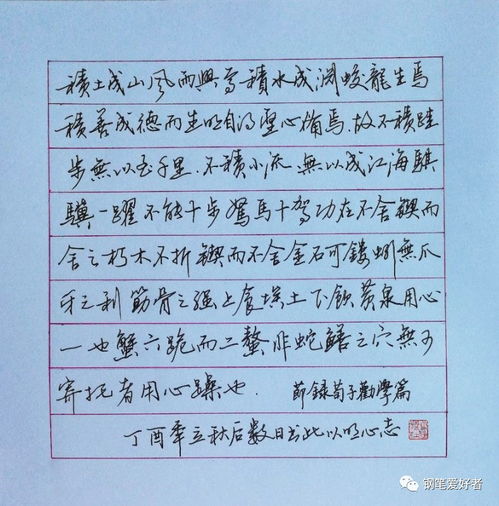 積土成山風雨興焉積水成渊蛟龍生焉
積善成德而生明自得聖心備焉.故不積跬
步無以至千里.不積小流無以成江海騏
驥一躍不能十步駑馬十驾功在不舍鍥而
舍之朽木不折鍥而不舍金石可鏤蚓無爪
牙之利筋骨之强上食埃土下飲黃泉用心
一也蟹六跪而二螯非蛇鱔之穴無可
寄托者用心躁也
節錄荀子勸學篇
丁酉年立秋后数日书此以明心志
钢笔爱好者